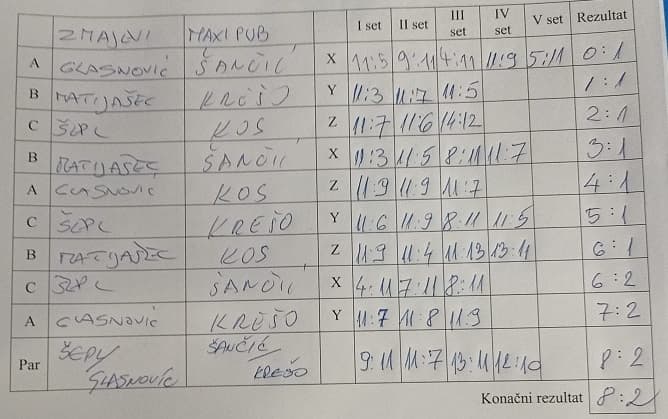 ZMAJEVI MAXI PUB I set II set III set IV set V set Rezultat
A GLASNOVIĆ ŠANČIĆ X 11:5 9:11 4:11 11:9 5:11 0:1
B MATIJAŠEC KREŠO Y 11:3 11:7 11:5 1:1
C ŠEPL KOS Z 11:7 11:6 14:12 2:1
B MATIJAŠEC ŠANČIĆ X 11:3 11:5 8:11 11:7 3:1
A GLASNOVIĆ KOS Z 11:9 11:9 11:7 4:1
C ŠEPL KREŠO Y 11:6 11:9 8:11 11:5 5:1
B MATIJAŠEC KOS Z 11:9 11:4 11:13 13:11 6:1
C ŠEPL ŠANČIĆ X 4:11 7:11 8:11 6:2
A GLASNOVIĆ KREŠO Y 11:7 11:8 11:9 7:2
Par ŠEPL/ GLASNOVIĆ ŠANČIĆ/ KREŠO 9:11 11:7 13:11 12:10 8:2
Konačni rezultat 8:2